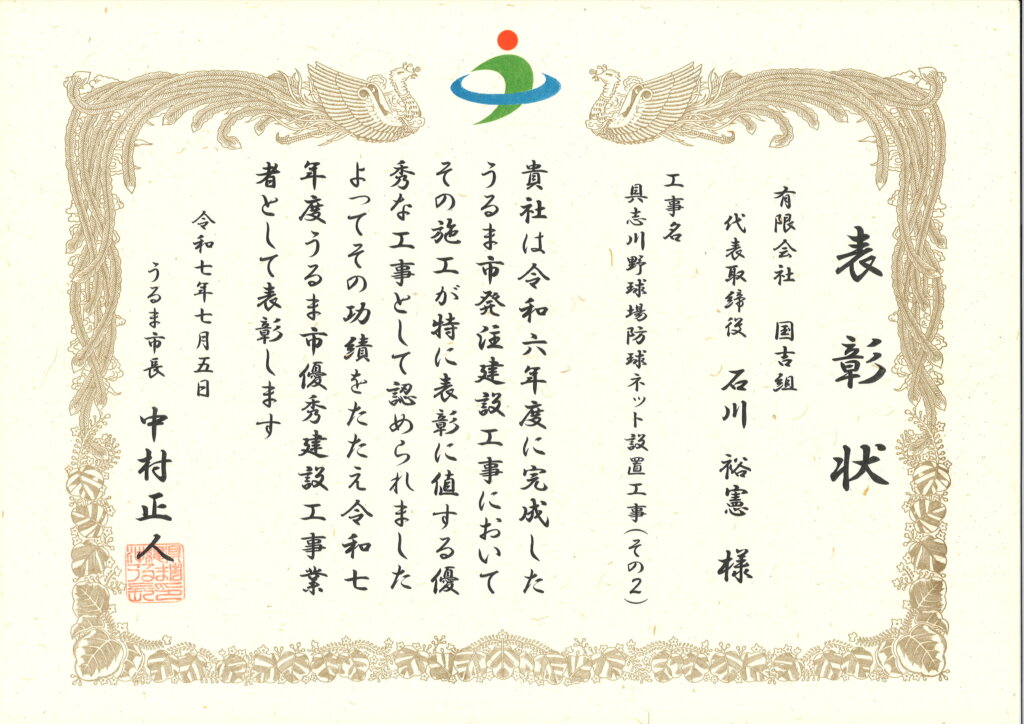 表彰状
有限会社 国吉組
代表取締役 石川 裕憲 様
工事名
具志川野球場防球ネット設置工事（その２）
貴社は令和六年度に完成した
うるま市発注建設工事において
その施工が特に表彰に値する優
秀な工事として認められました
よってその功績をたたえ令和七
年度うるま市優秀建設工事業
者として表彰します
令和七年七月五日
うるま市長 中村正人